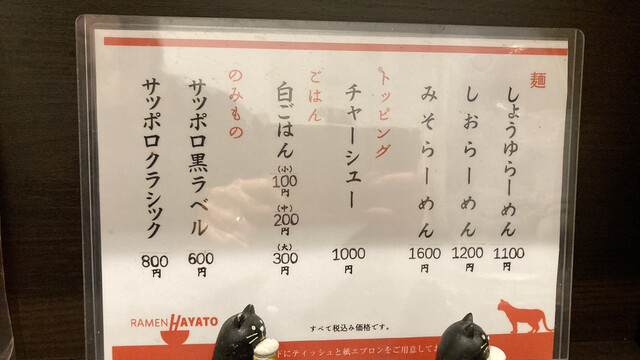 麺
しょうゆらーめん
1100円
しおらーめん
1200円
みそらーめん
1600円
トッピング
チャーシュー
1000円
ごはん
白ごはん
(小)
100円
(中)
200円
(大)
300円
のみもの
サッポロ黒ラベル
600円
サッポロクラシック
800円
RAMEN HAYATO
すべて税込み価格です。
ドにティッシュと紙エプロンをご用意してお